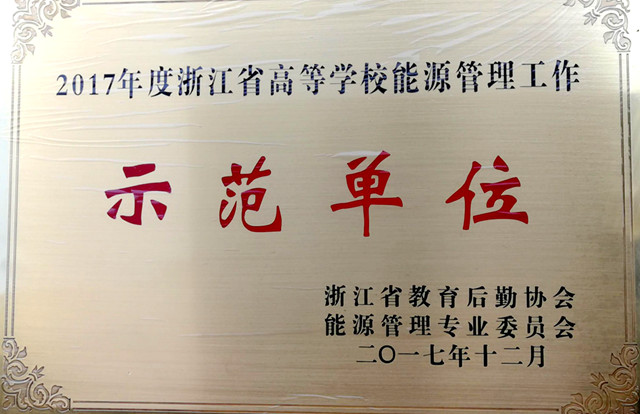 2017年度浙江省高等学校能源管理工作
示范单位
浙江省教育后勤协会
能源管理专业委员会
二〇一七年十二月